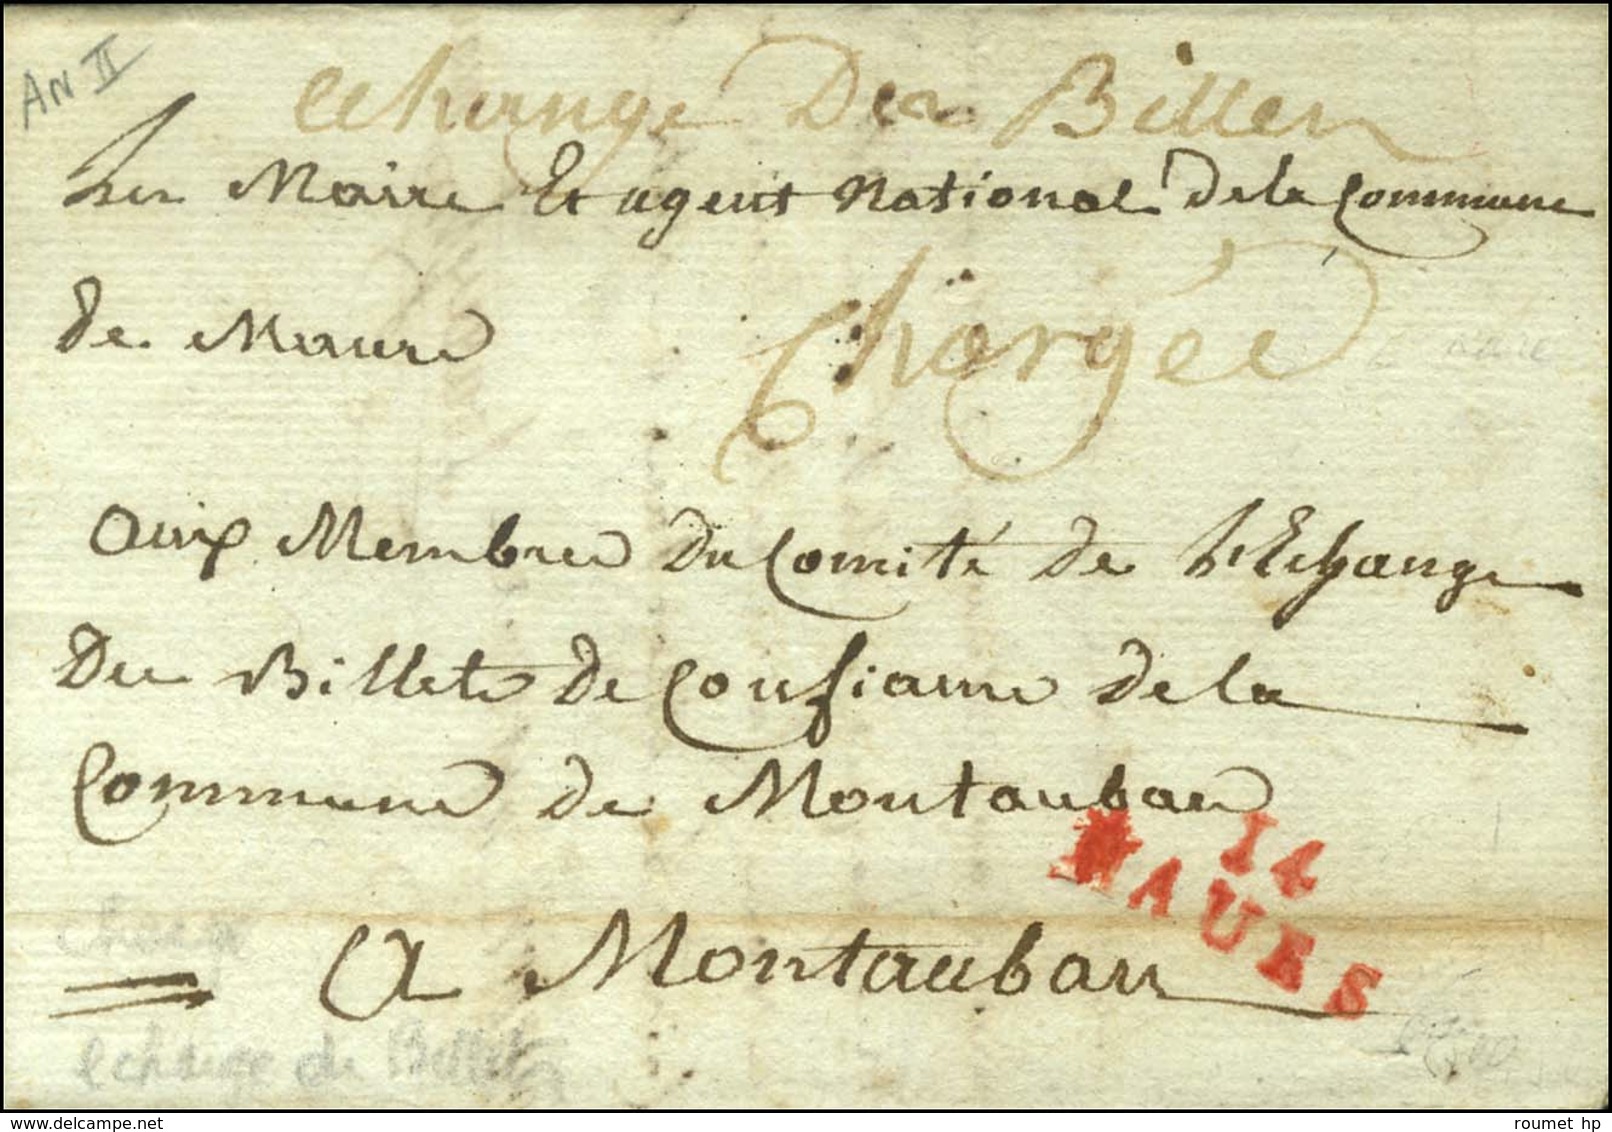 AN II
echange Des Billets
Les Maire Et agent National de la Commune
de Maurs
Chargée
Aux Membres Du Comité de l'Echange
Des Billets de Confiance de la
Commune de Montauban
14
MAURS
A Montauban
charge
echange de Billets
roumet hp